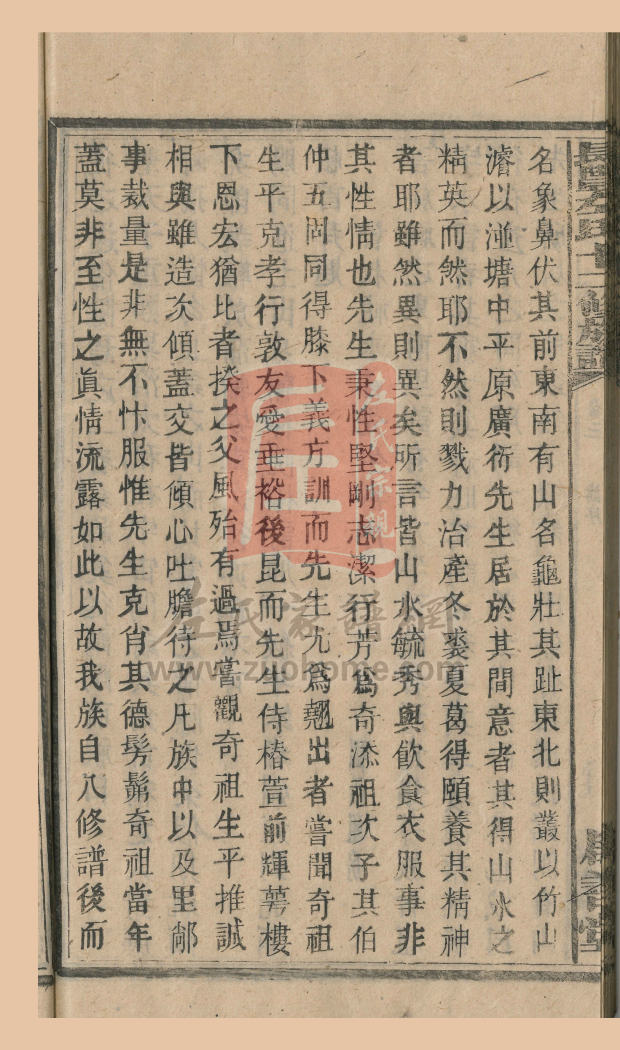 名象鼻伏其前東南有山名龜壯其趾東北則叢以竹山
濬以湴塘中平原廣衍先生居於其間意者其得山水之
精英而然耶不然則戮力治產冬裘夏葛得頤養其精神
者耶雖然異則異矣所言皆山水毓秀與飲食衣服事非
其性情也先生秉性堅剛志潔行芳為奇添祖次子其伯
仲五同同得膝下義方訓而先生尤為翹出者嘗聞奇祖
生平克孝行敦友愛垂裕後昆而先生侍椿萱前輝萼樓
下恩宏猶比者揆之父風殆有過焉嘗觀奇祖生平推誠
相與雖造次傾蓋交皆傾心吐膽待之凡族中以及里鄰
事裁量是非無不忭服惟先生克肖其德髣髴奇祖當年
蓋莫非至性之眞情流露如此以故我族自八修譜後而
左氏十二修族譜
左氏宗親
左氏家譜網
www.zuohome.com